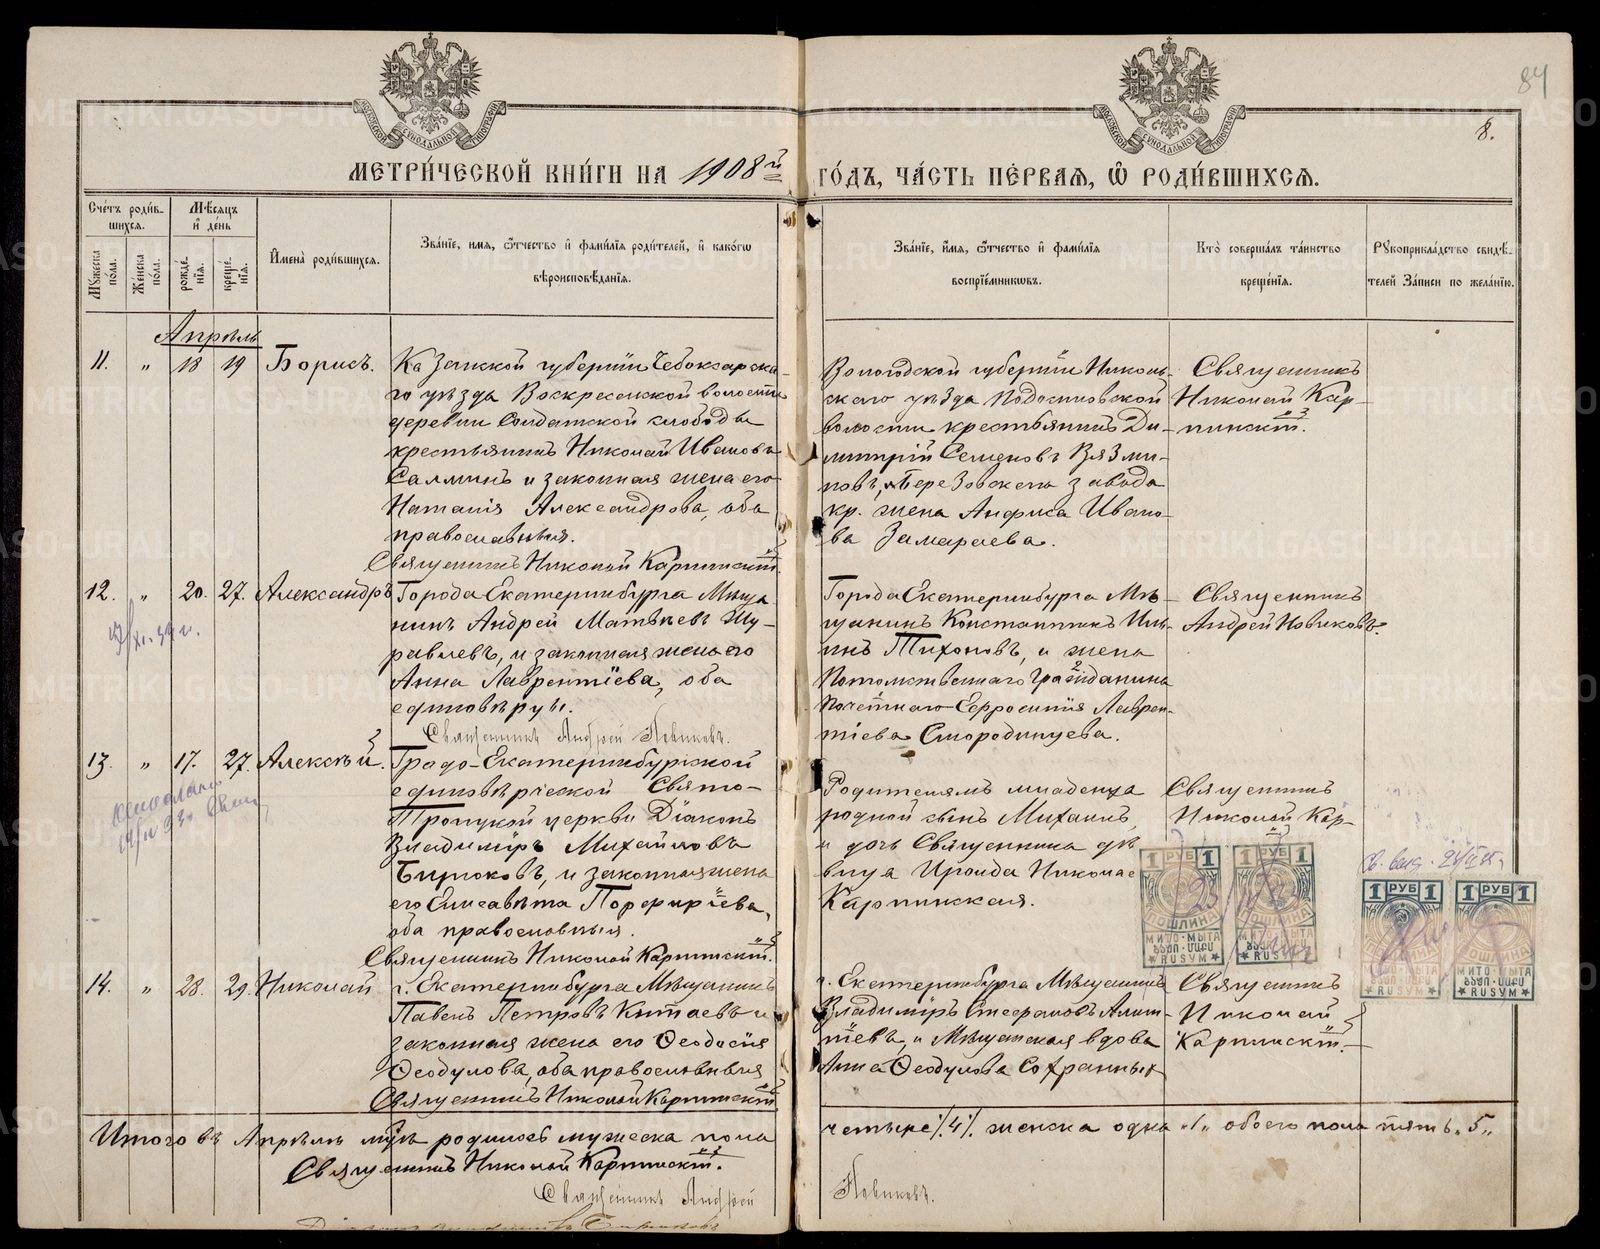 84
8.
МОСКОВСКОЙ СУНОДАЛЬНОЙ ТИПОГРАФІИ
МЕТРИ́ЧЕСКОЙ КНИ́ГИ НА 1908й
ГО́ДЪ, ЧА́СТЬ ПЕ́РВАЯ, Ѽ РОДИ́ВШИХСЯ.
Сче́тъ роди́в-
шихся.
Мꙋжеска по́ла.
Же́нска по́ла.
Мѣ́сяцъ
и҆ де́нь
рожде́нїя.
креще́нїя.
И҆мена̀ роди́вшихся.
Зва́нїе, имя, ѻ҆́тчество и҆ фами́лїя роди́телей, и҆ како́гѡ
вѣроисповѣ́данїя.
Зва́нїе, и҆́мя, ѻ҆́тчество и҆ фами́лїя
воспрїе́мникѡвъ.
Кто̀ соверша́лъ та́инство
креще́нїя.
Рꙋкоприкла́дство свидѣ́-
телей За́писи по жела́нїю.
Апрѣль
11. " 18 19 Борисъ.
Казанской губерніи Чебоксарска-
го уѣзда Воскресенской волости
деревни Солдатской слободы
крестьянинъ Николай Ивановъ
Салминъ и законная жена его
Наталія Александрова, оба
православныя.
Священникъ Николай Карпинскій.
Вологодской губерніи Николь-
скаго уѣзда Подосиновской
волости крестьянинъ Ди-
митрій Семеновъ Вязми-
новъ, и Березовскаго завода
кр. жена Анфиса Ивано-
ва Замараева.
Священникъ
Николай Кар-
пинскій.
12. " 20. 27. Александръ
Города Екатеринбурга Мѣща-
нинъ Андрей Матвѣевъ Жу-
равлевъ, и законная жена его
Анна Лаврентіева, оба
единовѣрцы.
Священникъ Андрей Новиковъ.
Города Екатеринбурга Мѣ-
щанинъ Константинъ Иль-
инъ Тихоновъ, и жена
Потомственнаго Гражданина
Почетнаго Евфросинія Лаврен-
тіева Смородинцева.
Священникъ
Андрей Новиковъ.
13. " 17. 27. Алексѣй.
Градо-Екатеринбургской
единовѣрческой Свято-
Троицкой церкви Діаконъ
Владиміръ Михайловъ
Бирюковъ, и законная жена
его Елисавета Порфиріева,
оба православныя.
Священникъ Николай Карпинскій.
Родителямъ младенца
родной сынъ Михаилъ,
и дочь Священника дѣ-
вица Ираида Николае
Карпинская.
Священникъ
Николай Кар-
1 РУБ 1
ПОШЛИНА
МИТО·МЫТА
RUSUM
1 РУБ 1
ПОШЛИНА
МИТО·МЫТА
RUSUM
1 РУБ 1
ПОШЛИНА
МИТО·МЫТА
RUSUM
1 РУБ 1
ПОШЛИНА
МИТО·МЫТА
RUSUM
14. " 28. 29. Николай
г. Екатеринбурга Мѣщанинъ
Павелъ Петровъ Китаевъ и
законная жена его Ѳеодосія
Ѳеодулова, оба православныя
Священникъ Николай Карпинскій.
г. Екатеринбурга Мѣщанинъ
Владиміръ Стефановъ
и Мѣщанская вдова
Анна Ѳеодулова
Священникъ
Николай
Карпинскій.
Итого въ Апрѣлѣ мцѣ родилось мужеска пола
четыре /4/, женска одна "1" обоего пола пять "5"
Священникъ Николай Карпинскій.
Священникъ Андрей
Новиковъ.